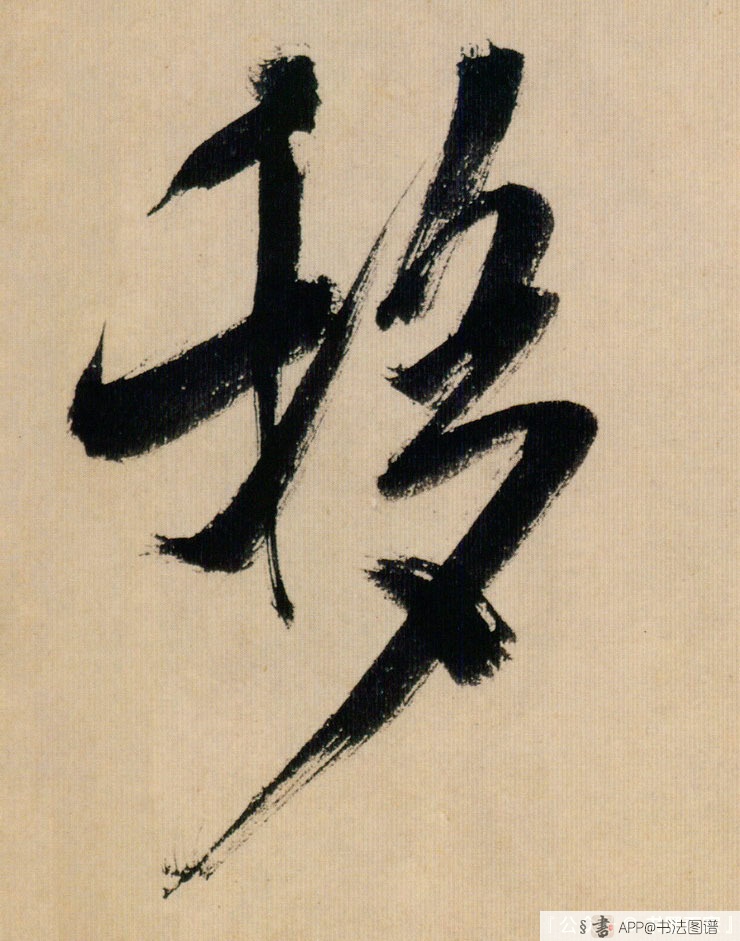 移
§書 APP@书法图谱